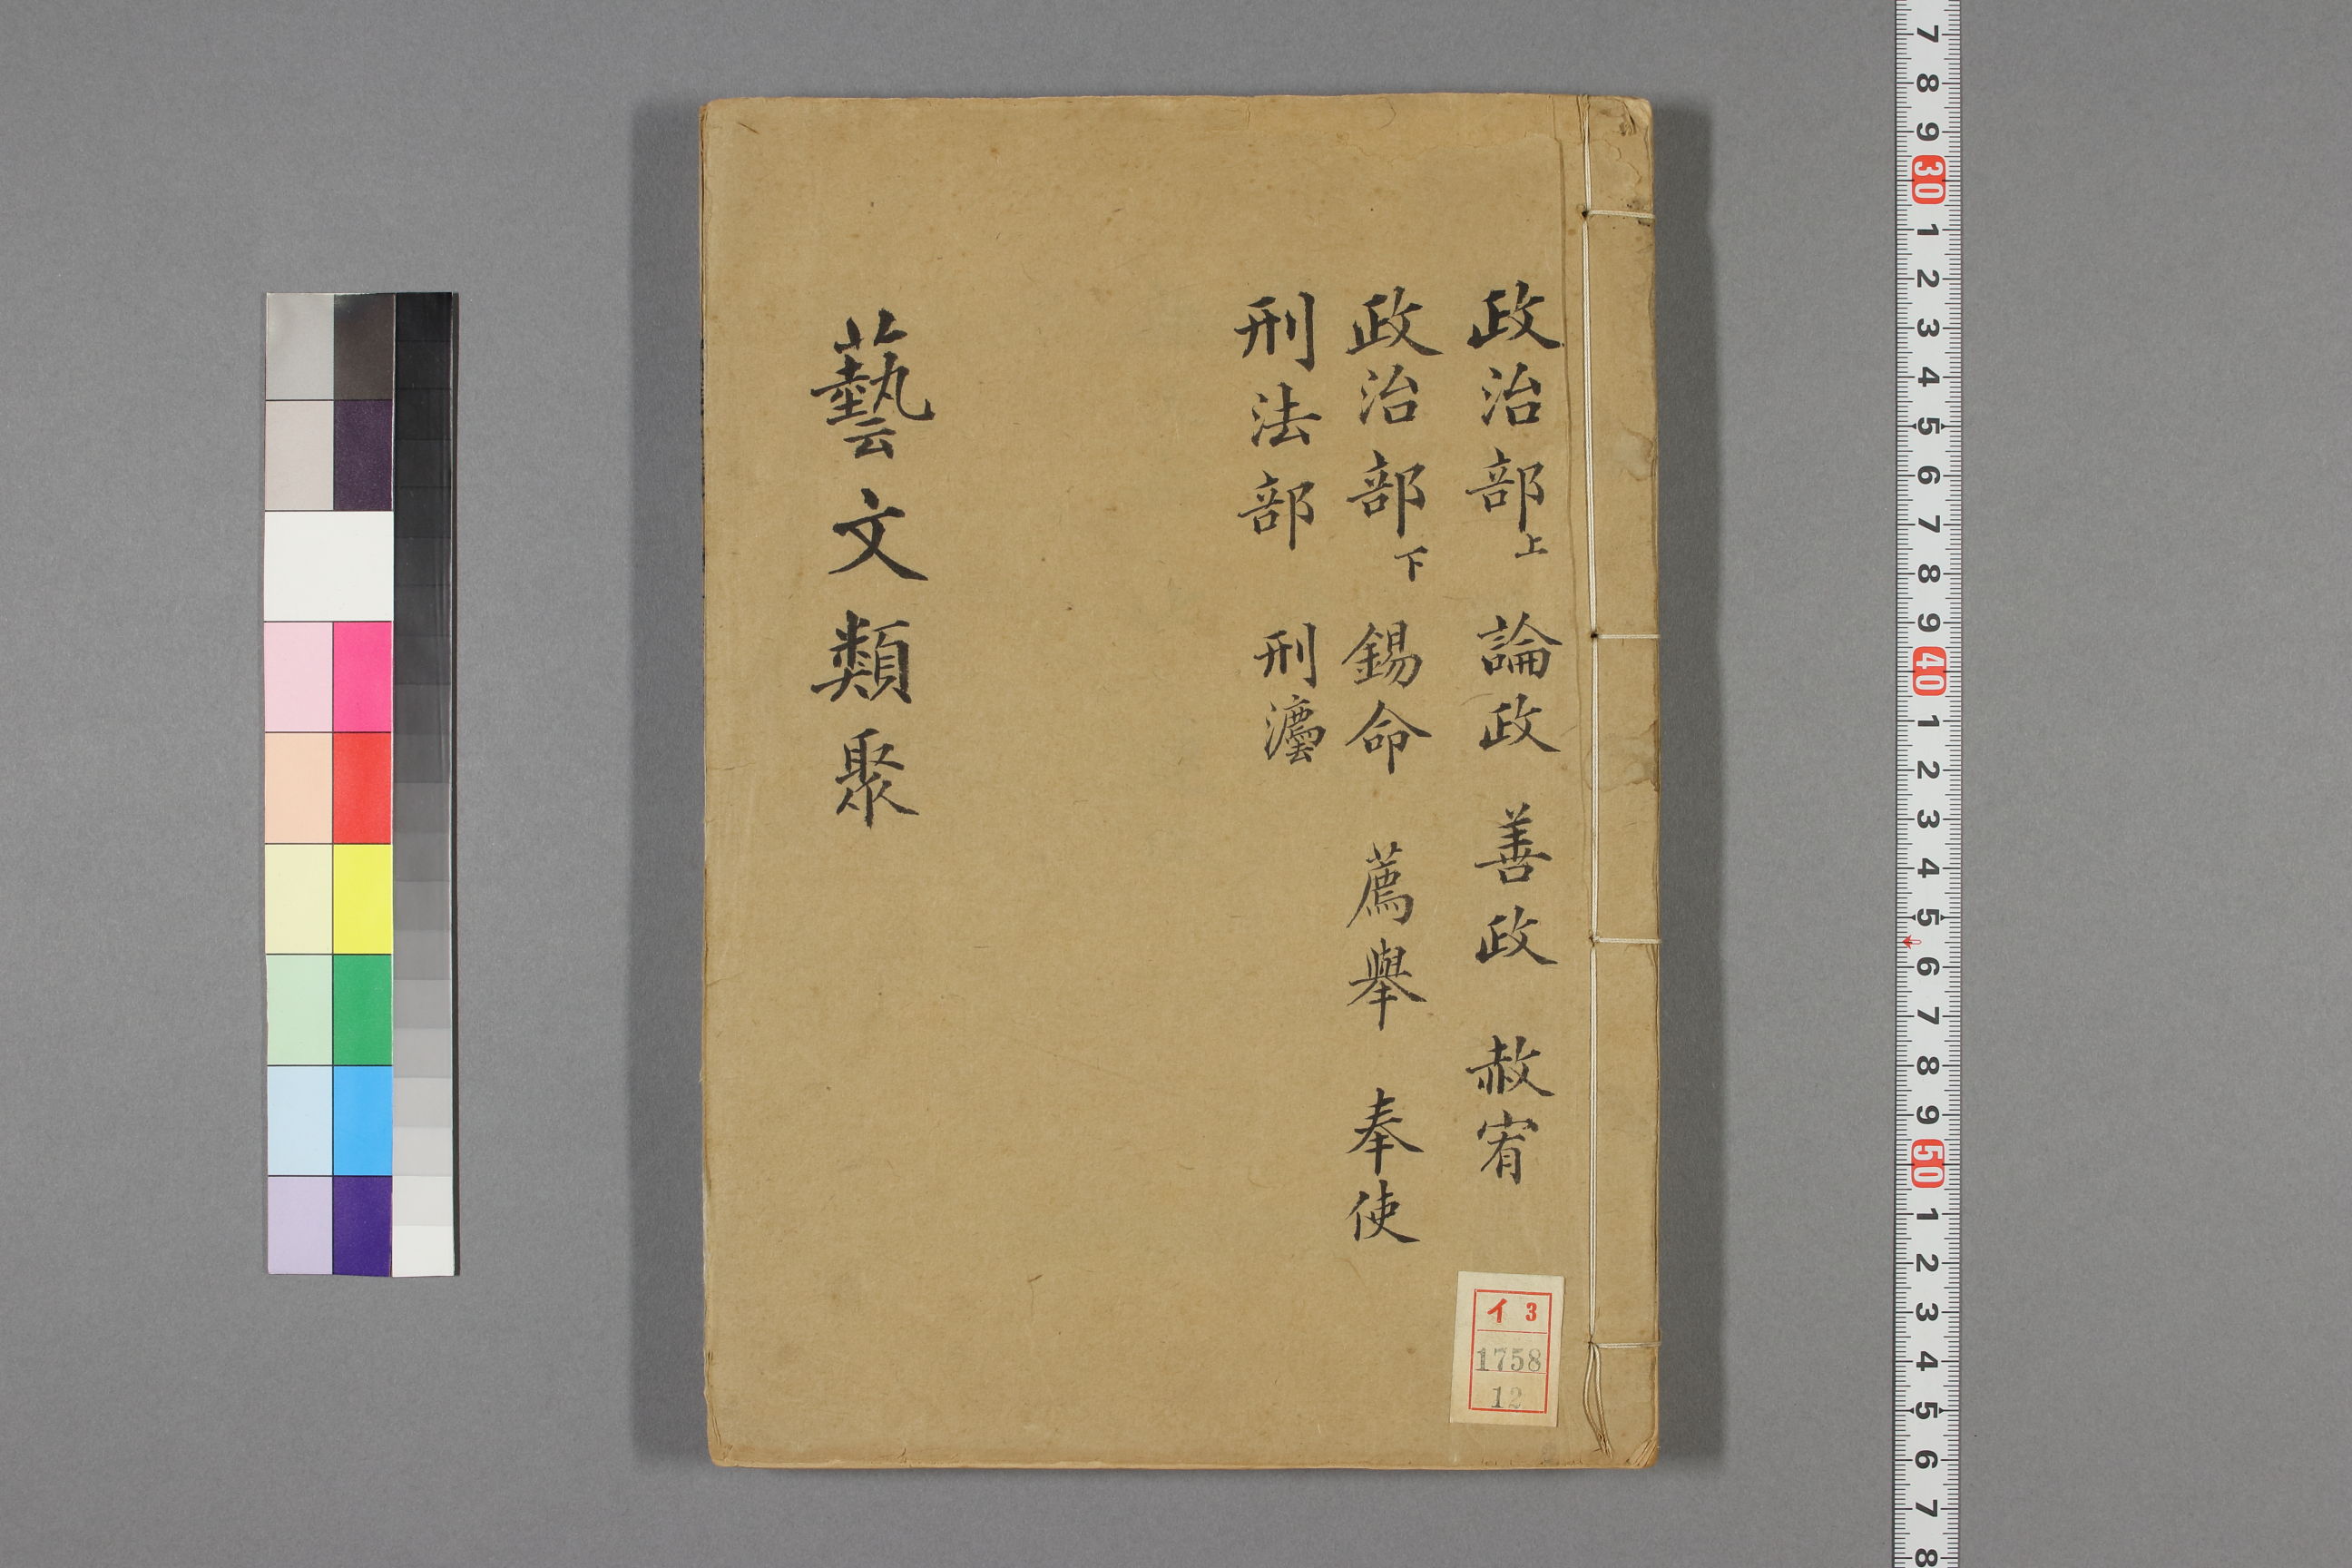 政治部上 論政 善政 赦宥
政治部下 錫命 薦舉 奉使
刑法部 刑灋
藝文類聚
イ 3
1758
12
7 8 9 30 1 2 3 4 5 6 7 8 9 40 1 2 3 4 5 6 7 8 9 50 1 2 3 4 5 6 7 8